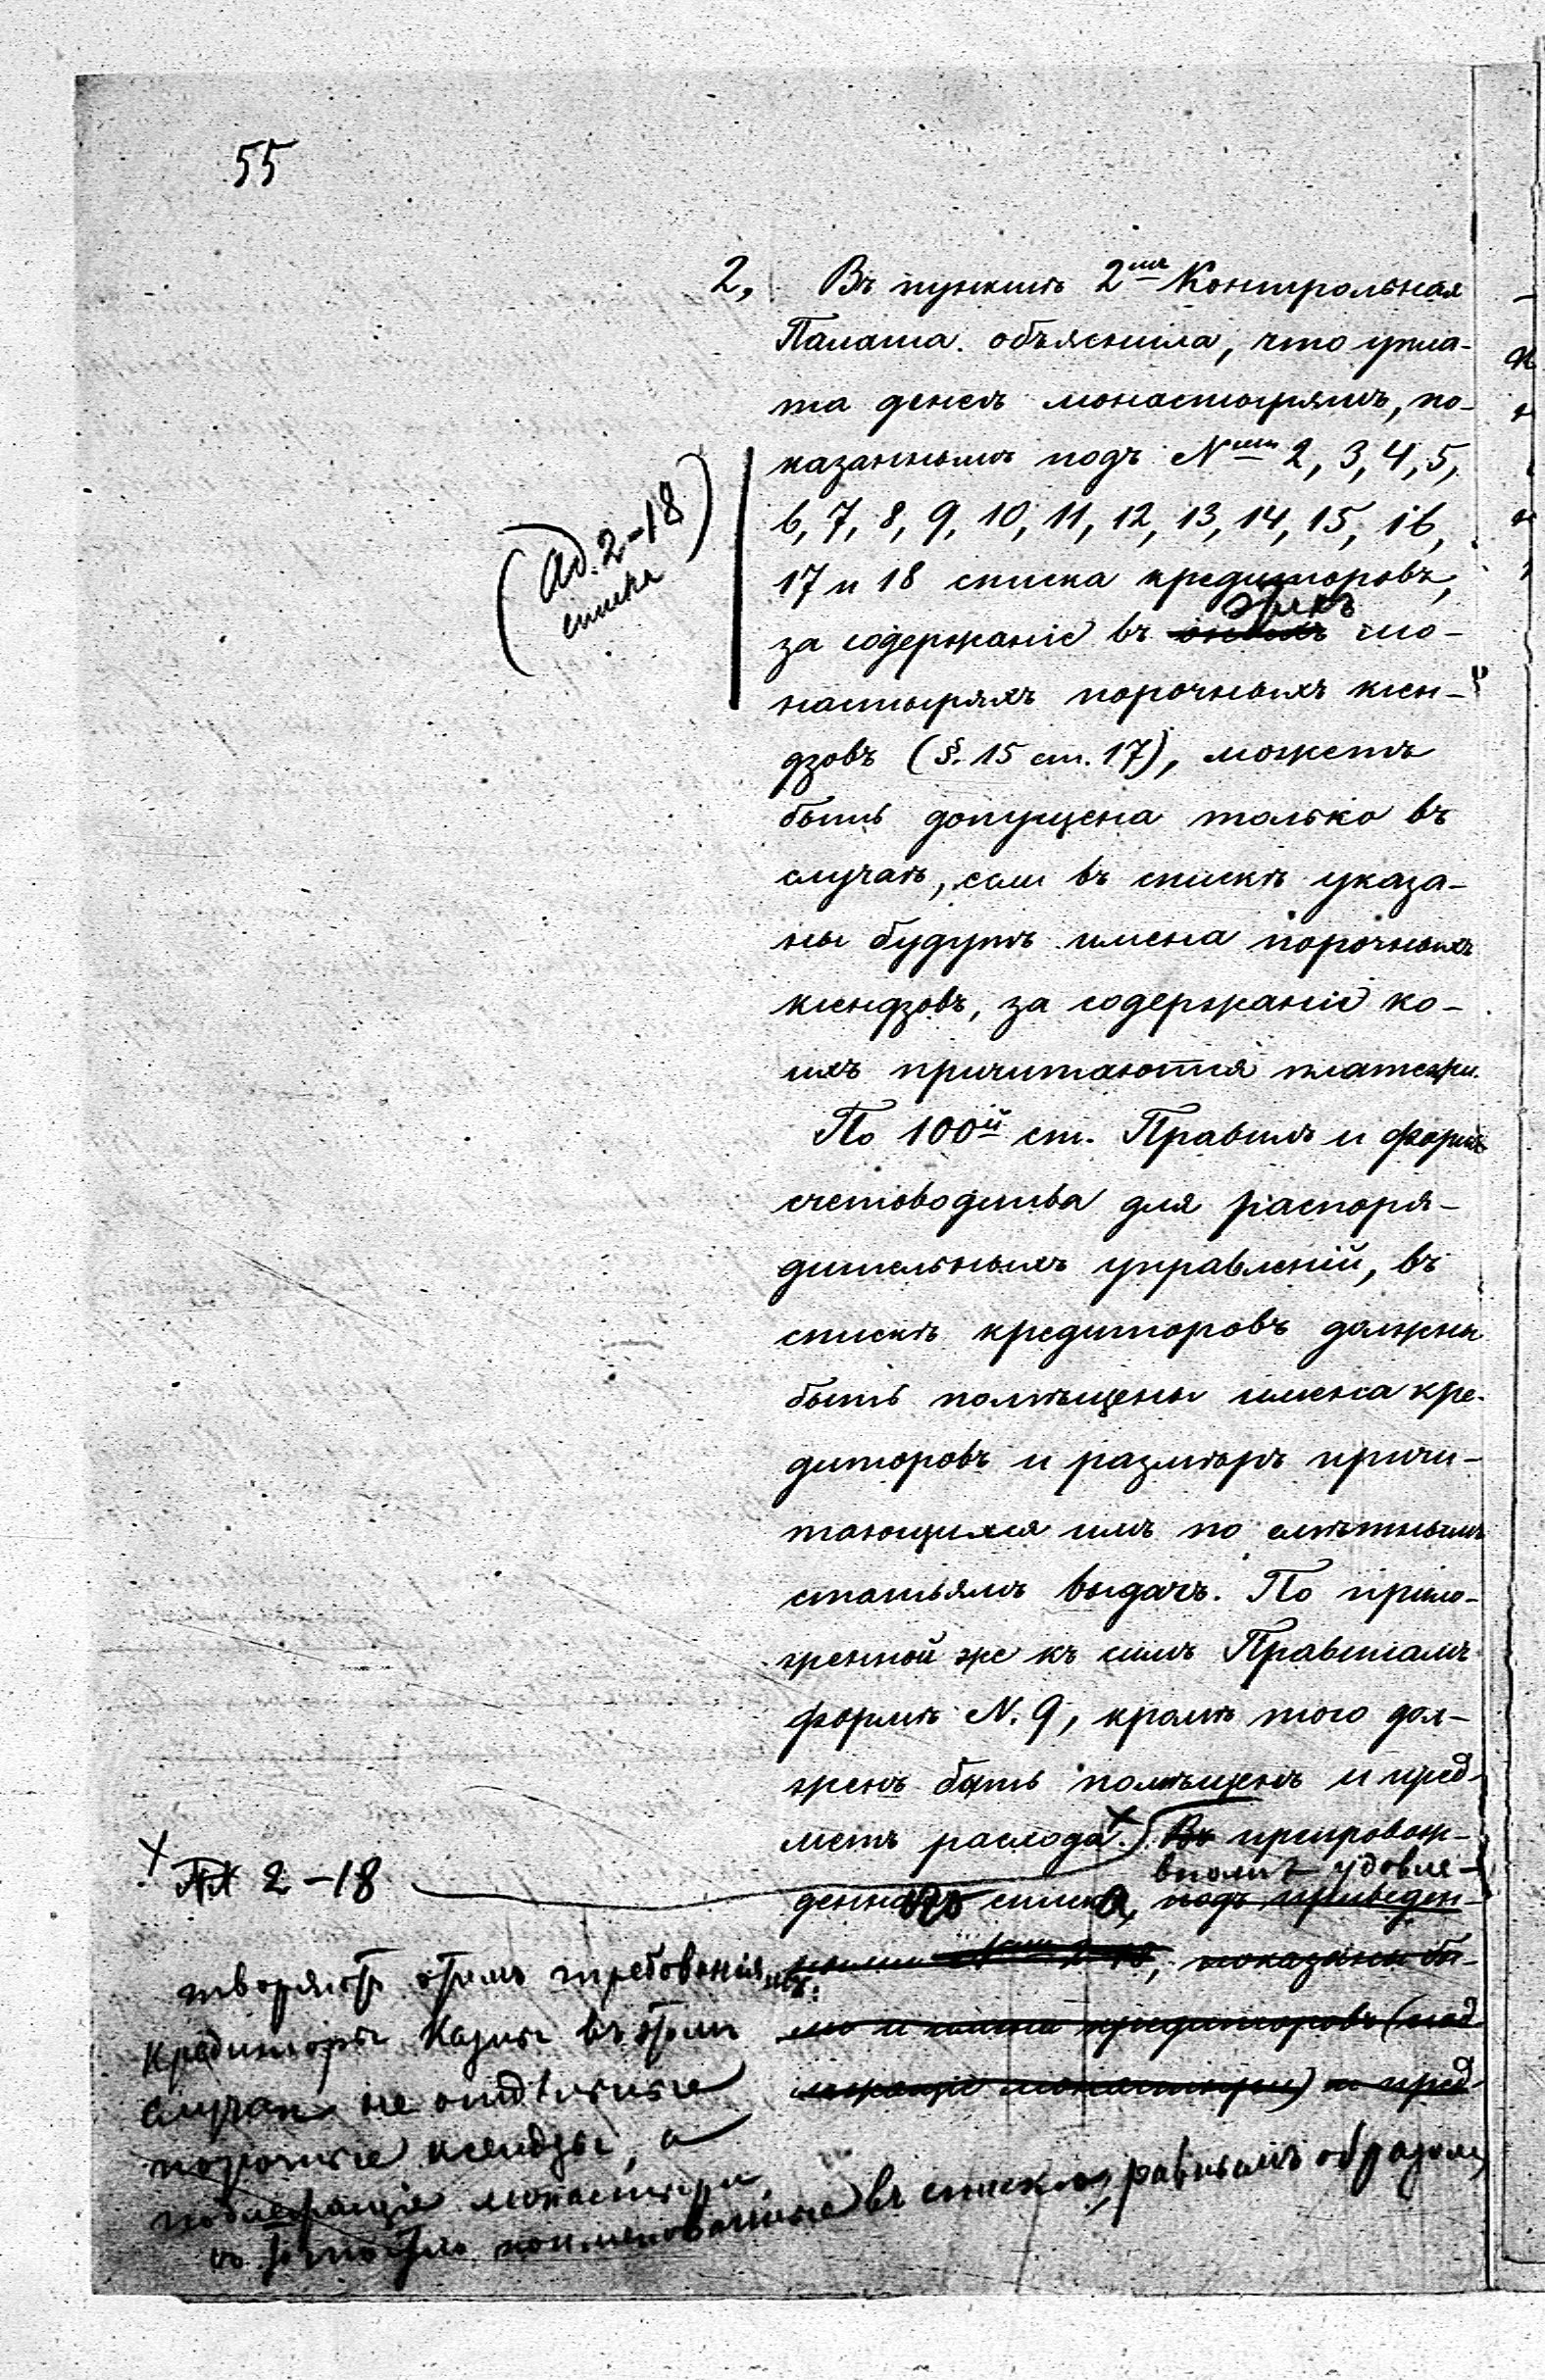 55
2, Въ пунктѣ 2мъ Контрольная
Палата объяснила, что упла-
та денегъ монастырямъ, по-
казаннымъ подъ Nми 2, 3, 4, 5,
6, 7, 8, 9, 10, 11, 12, 13, 14, 15, 16,
17 и 18 списка кредиторовъ,
(Ad. 2-18
списка)
этихъ
за содержаніе въ оныхъ мо-
настыряхъ порочныхъ ксен-
дзовъ (§. 15 ст. 17), можетъ
быть допущена только въ
случаѣ, если въ спискѣ указа-
ны будутъ имена порочныхъ
ксендзовъ, за содержаніе ко-
ихъ причитаются платежи.
По 100й ст. Правилъ и формъ
счетоводства для распоря-
дительныхъ управленій, въ
спискѣ кредиторовъ должны
быть помѣщены имена кре-
диторовъ и размѣръ причи-
тающихся имъ по смѣтнымъ
статьямъ выдачъ. По прило-
женной же къ симъ Правиламъ
формѣ N. 9, кромѣ того дол-
женъ быть помѣщенъ и пред-
метъ расхода. Въ препровож-
вполнѣ удовле-
денно списка, подъ приведен-
ными Nми 2-18, показаны бы-
ло и имена кредиторовъ (над-
лежащіе монастыри) и пред-
х 2-18
творяютъ этимъ требованіямъ:
кредиторы казны въ этомъ
случаѣ не отдѣльные
порочные ксендзы, а
подлежащіе монастыри,
поименованные въ спискѣ, равнымъ образомъ